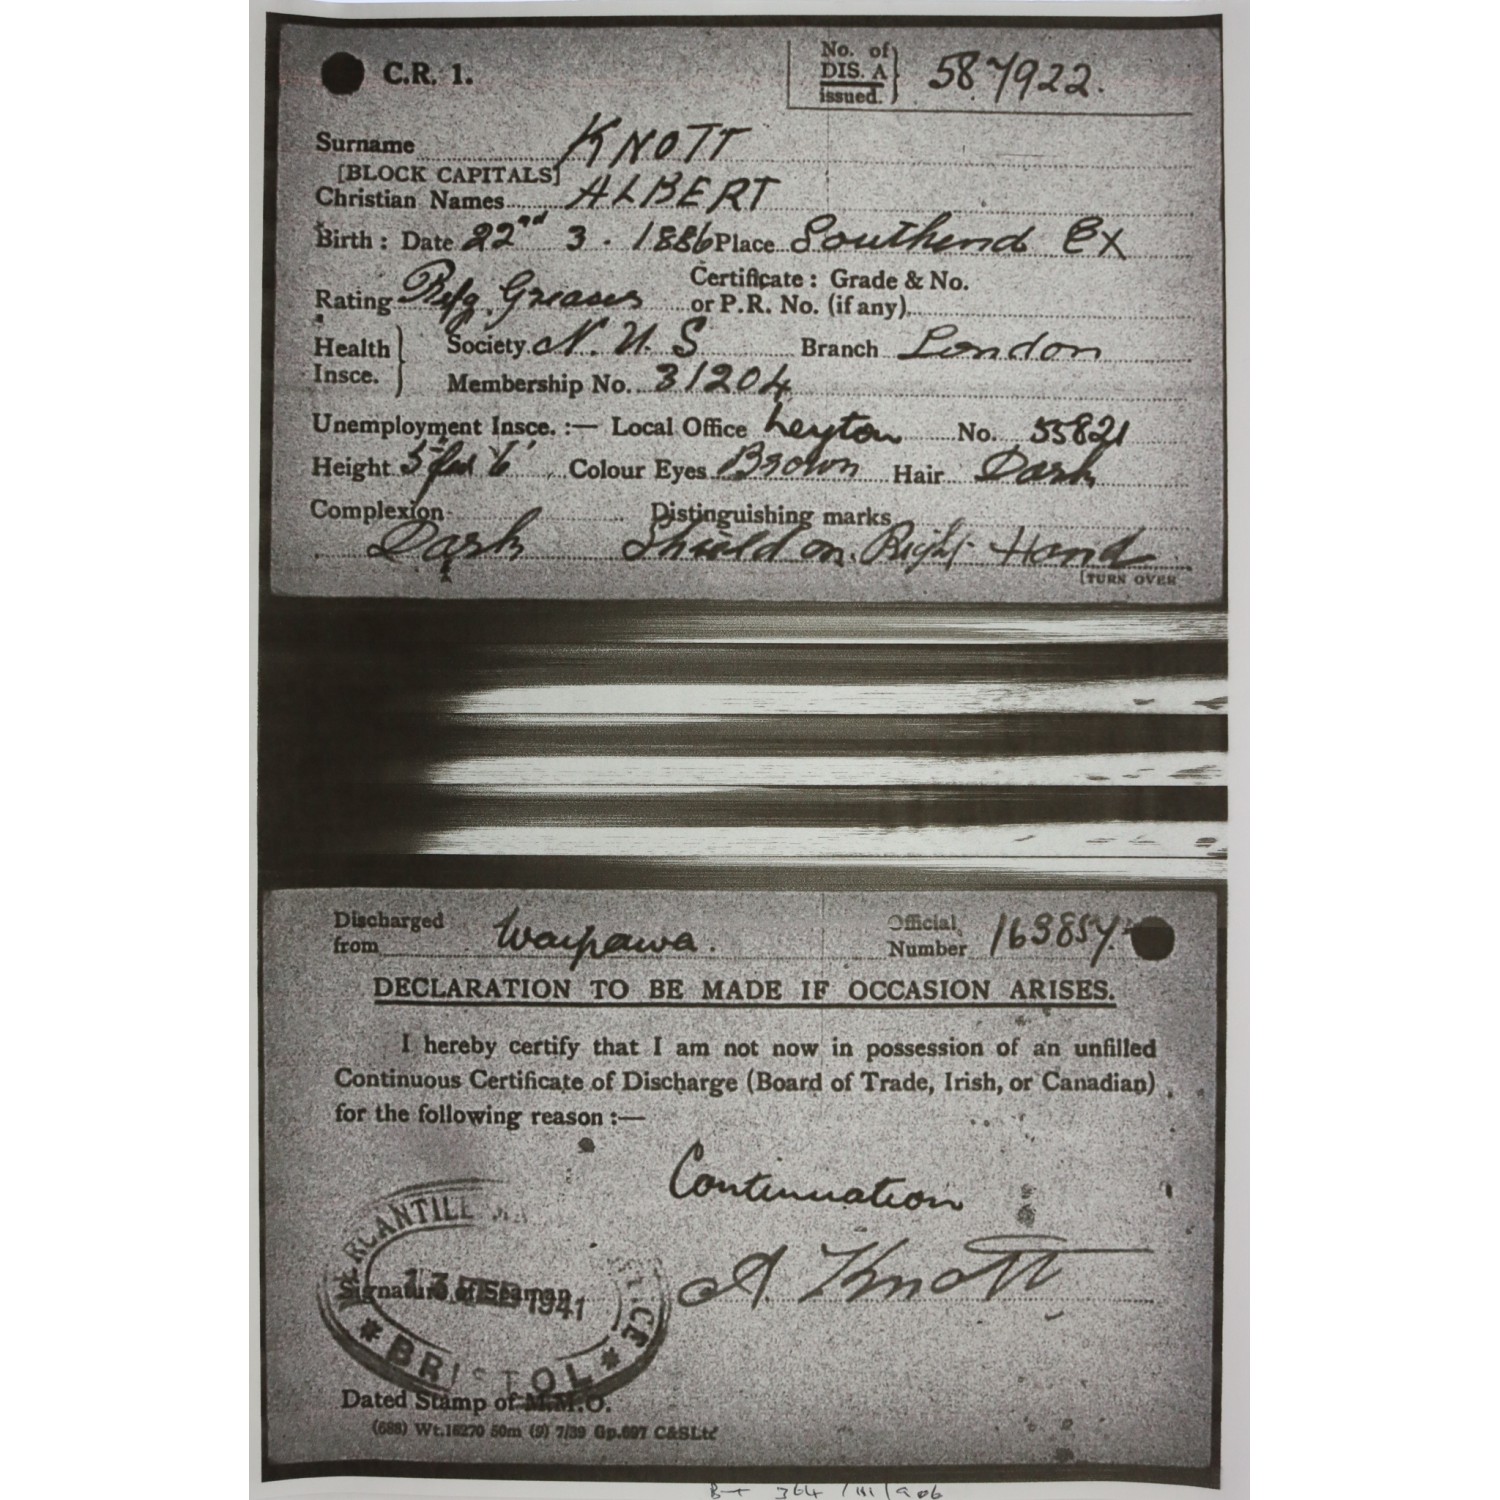 C.R. 1.
No. of DIS. A issued. 587922.
Surname KNOTT
[BLOCK CAPITALS]
Christian Names ALBERT
Birth: Date 22nd 3. 1886 Place Southend Ex
Certificate: Grade & No.
Rating Refg. Greaser or P.R. No. (if any)
Health Insce. Society N. U. S Branch London
Membership No. 31204
Unemployment Insce. :— Local Office Leyton No. 55821
Height 5 feet 6 Colour Eyes Brown Hair Dark
Complexion Distinguishing marks
Dark Shield on Right Hand
[TURN OVER
Discharged from Waipawa. Official Number 163857
DECLARATION TO BE MADE IF OCCASION ARISES.
I hereby certify that I am not now in possession of an unfilled
Continuous Certificate of Discharge (Board of Trade, Irish, or Canadian)
for the following reason :—
Continuation
MERCANTILE
13 FEB 1941
Signature of Seaman A. Knott
BRISTOL
Dated Stamp of M.M.O.
(688) Wt.16270 50m (9) 7/39 Gp.697 C&SLtd
BT 364